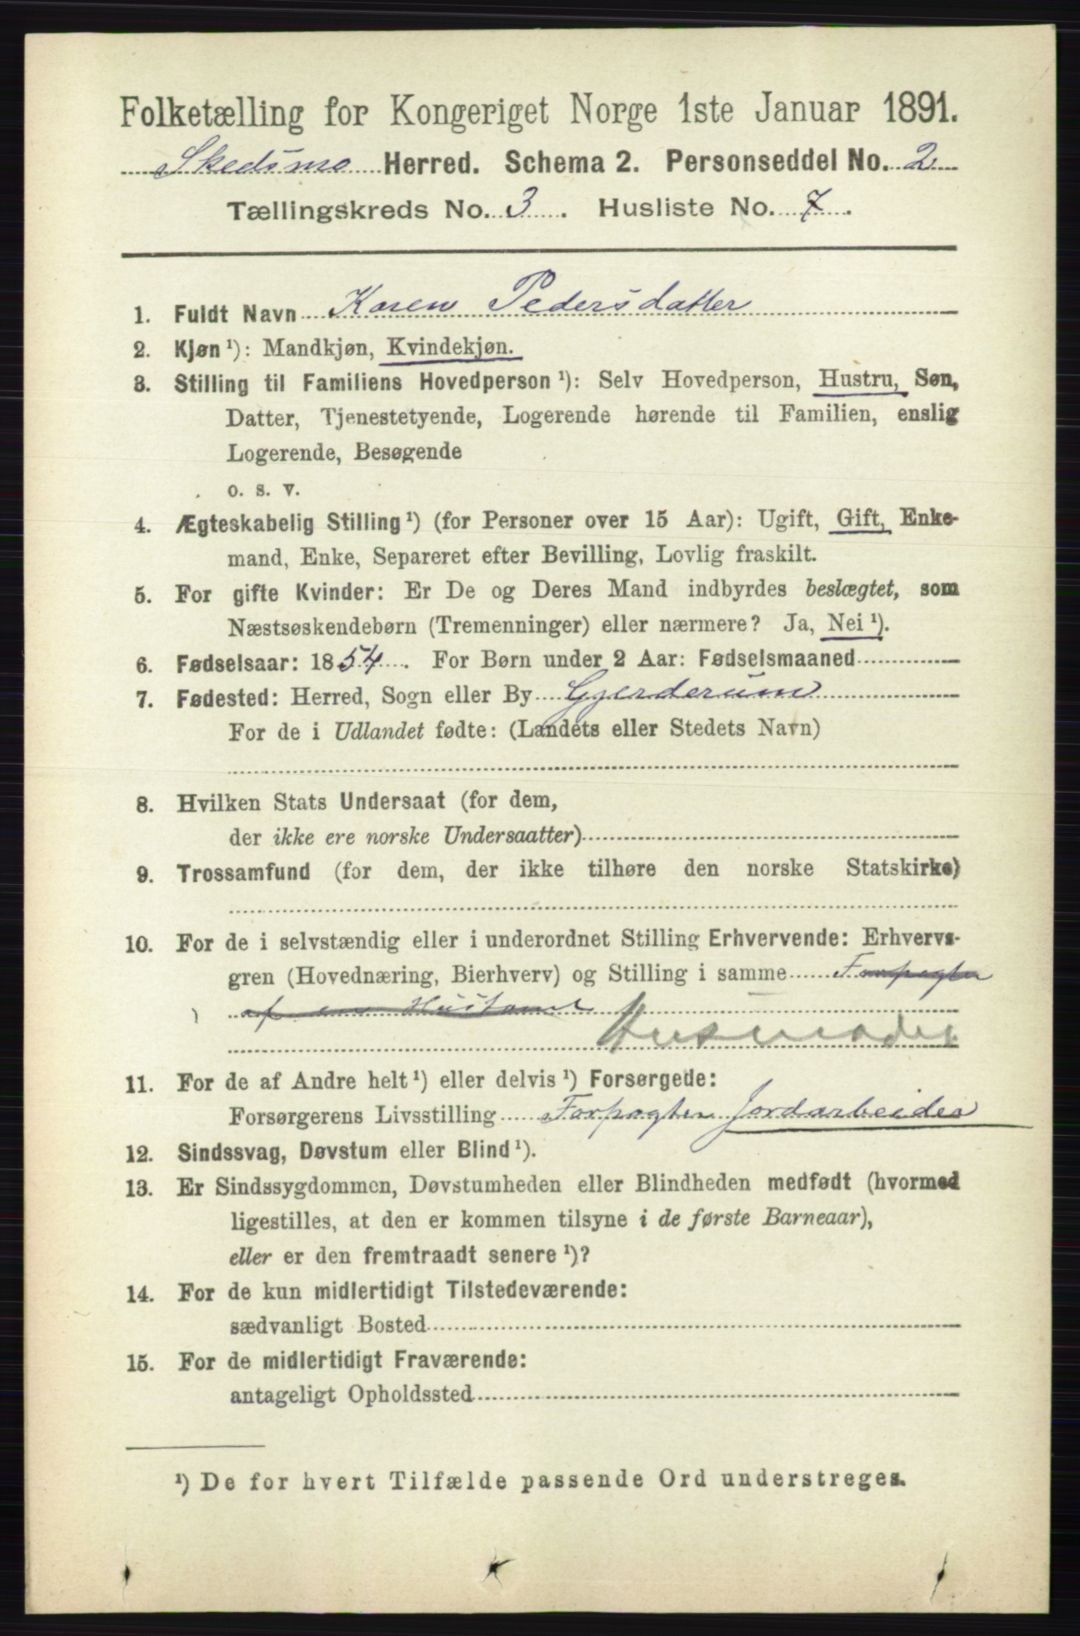 Folketælling for Kongeriget Norge 1ste Januar 1891.
Skedsmo Herred. Schema 2. Personseddel No. 2
Tællingskreds No. 3. Husliste No. 7.
1. Fuldt Navn Karen Pedersdatter
2. Kjøn ¹): Mandkjøn, Kvindekjøn.
3. Stilling til Familiens Hovedperson ¹): Selv Hovedperson, Hustru, Søn,
Datter, Tjenestetyende, Logerende hørende til Familien, enslig
Logerende, Besøgende
o. s. v.
4. Ægteskabelig Stilling ¹) (for Personer over 15 Aar): Ugift, Gift, Enke-
mand, Enke, Separeret efter Bevilling, Lovlig fraskilt.
5. For gifte Kvinder: Er De og Deres Mand indbyrdes beslægtet, som
Næstsøskendebørn (Tremenninger) eller nærmere? Ja, Nei ¹).
6. Fødselsaar: 1854. For Børn under 2 Aar: Fødselsmaaned
7. Fødested: Herred, Sogn eller By Gjerderum
For de i Udlandet fødte: (Landets eller Stedets Navn)
8. Hvilken Stats Undersaat (for dem,
der ikke ere norske Undersaatter)
9. Trossamfund (for dem, der ikke tilhøre den norske Statskirke)
10. For de i selvstændig eller i underordnet Stilling Erhvervende: Erhvervs-
gren (Hovednæring, Bierhverv) og Stilling i samme Forpagter
af en
Husmoder
11. For de af Andre helt ¹) eller delvis ¹) Forsørgede:
Forsørgerens Livsstilling Forpagter Jordarbeider
12. Sindssvag, Døvstum eller Blind ¹).
13. Er Sindssygdommen, Døvstumheden eller Blindheden medfødt (hvormed
ligestilles, at den er kommen tilsyne i de første Barneaar),
eller er den fremtraadt senere ¹)?
14. For de kun midlertidigt Tilstedeværende:
sædvanligt Bosted
15. For de midlertidigt Fraværende:
antageligt Opholdssted
¹) De for hvert Tilfælde passende Ord understreges.